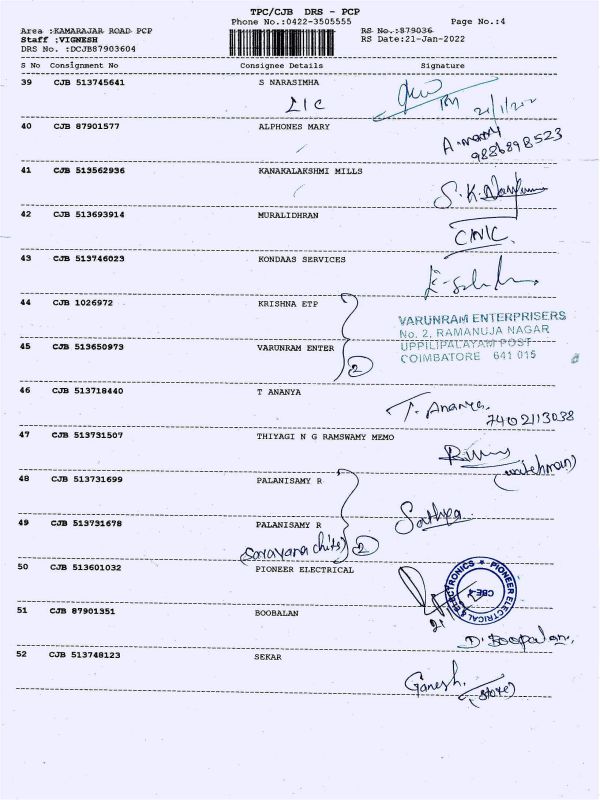 TPC/CJB DRS - PCP
Phone No.:0422-3505555 Page No.:4
Area :KAMARAJAR ROAD PCP RS No.:879036
Staff :VIGNESH RS Date:21-Jan-2022
DRS No. :DCJB87903604
S No Consignment No Consignee Details Signature
39 CJB 513745641 S NARASIMHA
LIC 21/1/2022
40 CJB 87901577 ALPHONES MARY A. mary
9886898523
41 CJB 513562936 KANAKALAKSHMI MILLS
42 CJB 513693914 MURALIDHRAN
43 CJB 513746023 KONDAAS SERVICES
44 CJB 1026972 KRISHNA ETP
VARUNRAM ENTERPRISERS
No. 2, RAMANUJA NAGAR
45 CJB 513650973 VARUNRAM ENTER UPPILIPALAYAM POST
2 COIMBATORE 641 015
46 CJB 513718440 T ANANYA T. Ananya.
7402113038
47 CJB 513731507 THIYAGI N G RAMSWAMY MEMO
(watchman)
48 CJB 513731699 PALANISAMY R
49 CJB 513731678 PALANISAMY R Sathya
(Saravana chits) 2
50 CJB 513601032 PIONEER ELECTRICAL PIONEER ELECTRICAL & ELECTRONICS ★ CBE-4
51 CJB 87901351 BOOBALAN
D. Boopalan.
52 CJB 513748123 SEKAR
Ganesh. (store)